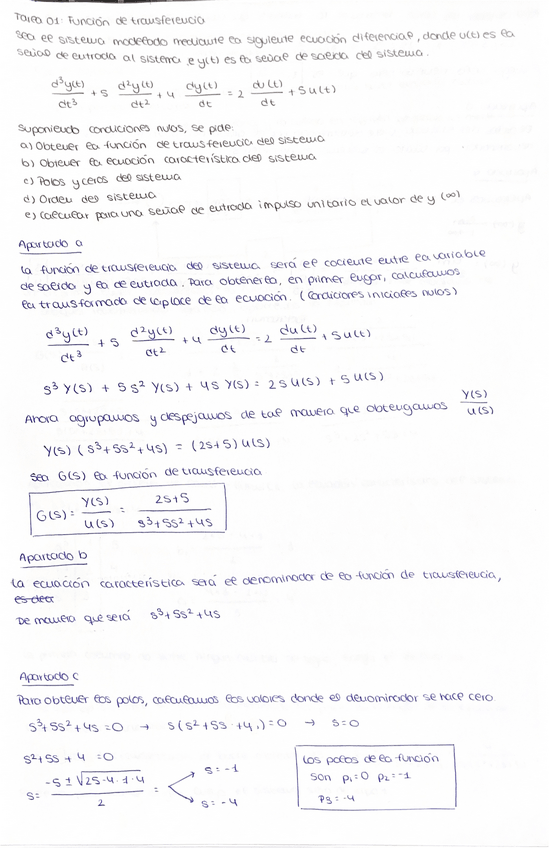 Tarea 01: Función de transferencia
Sea el sistema modelado mediante la siguiente ecuación diferencial, donde u(t) es la
señal de entrada al sistema e y(t) es la señal de salida del sistema.
d³y(t)/dt³ + 5 d²y(t)/dt² + 4 dy(t)/dt = 2 du(t)/dt + 5u(t)
Suponiendo condiciones nulas, se pide:
a) Obtener la función de transferencia del sistema
b) Obtener la ecuación característica del sistema
c) Polos y ceros del sistema
d) Orden del sistema
e) Calcular para una señal de entrada impulso unitario el valor de y(∞)
Apartado a
La función de transferencia del sistema será el cociente entre la variable
de salida y la de entrada. Para obtenerla, en primer lugar, calculamos
la transformada de Laplace de la ecuación. (Condiciones iniciales nulas)
d³y(t)/dt³ + 5 d²y(t)/dt² + 4 dy(t)/dt = 2 du(t)/dt + 5u(t)
s³ Y(s) + 5s² Y(s) + 4s Y(s) = 2s U(s) + 5 U(s)
Ahora agrupamos y despejamos de tal manera que obtengamos Y(s)/U(s)
Y(s) (s³+5s²+4s) = (2s+5) U(s)
Sea G(s) la función de transferencia
G(s) = Y(s)/U(s) = 2s+5/s³+5s²+4s
Apartado b
La ecuación característica será el denominador de la función de transferencia,
es decir
De manera que será s³+5s²+4s
Apartado c
Para obtener los polos, calculamos los valores donde el denominador se hace cero
s³+5s²+4s=0 → s(s²+5s+4)=0 → s=0
s²+5s+4=0
s= -5±√25-4·1·4/2 = s=-1
s=-4
Los polos de la función
son p₁=0 p₂=-1
p₃=-4